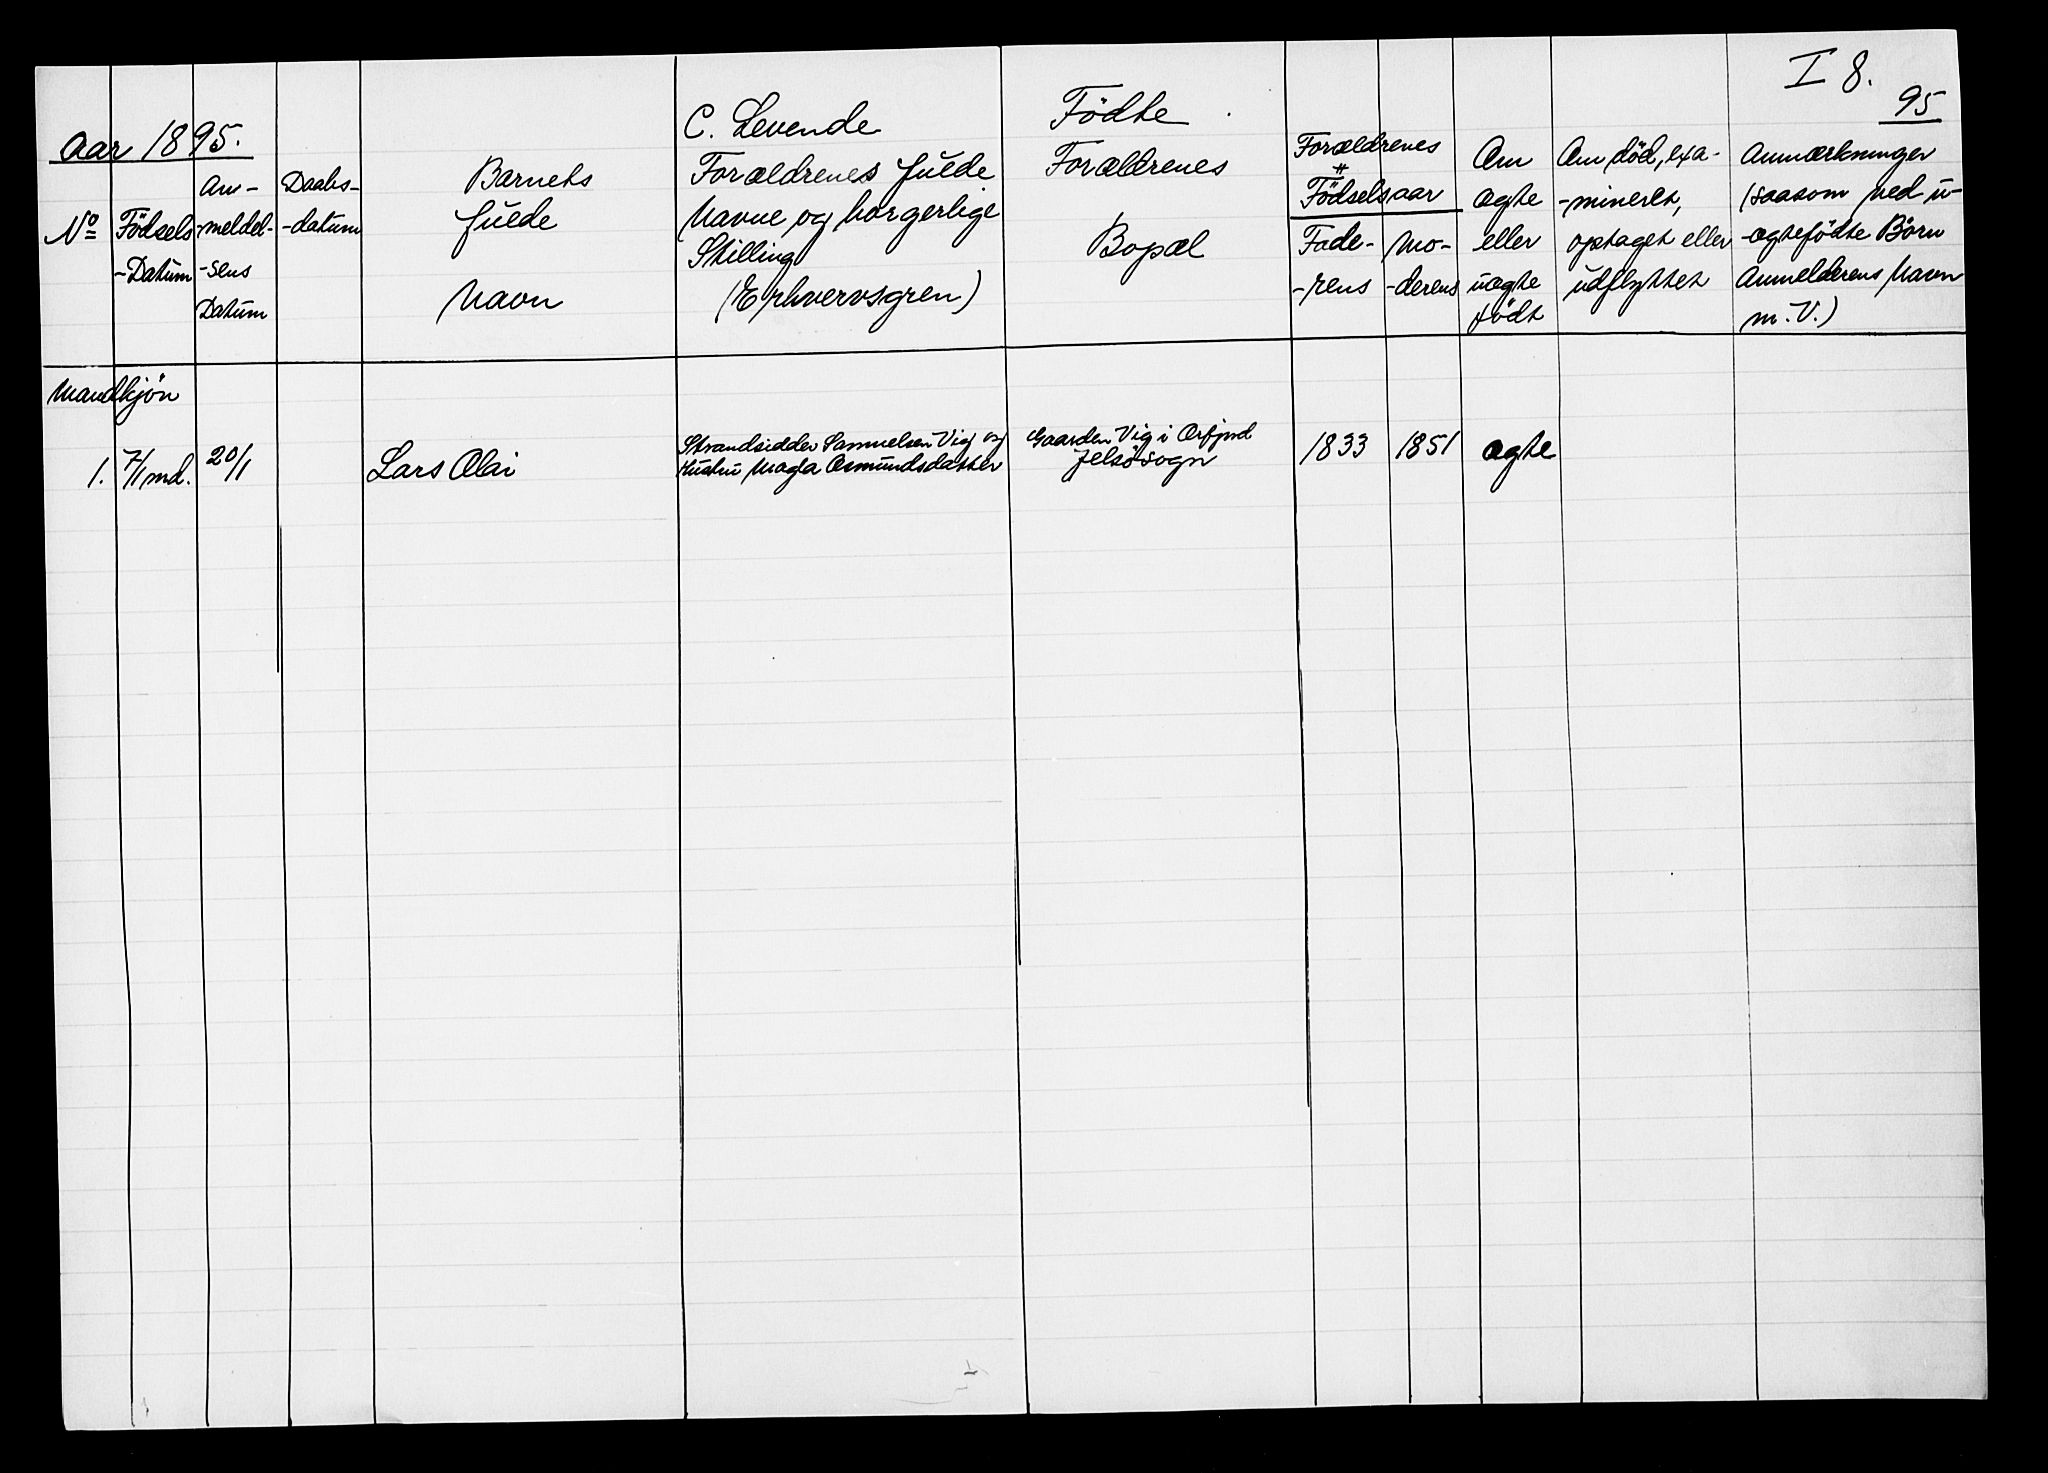 I 8.
95
Aar 1895.
C. Levende Födte
No Födsels-Datum
An-meldel-sens Datum
Daabs-datum
Barnets fulde Navn
Forældrenes fulde
Navne og borgerlige
Stilling
(Erhvervsgren)
Forældrenes
Bopæl
Forældrenes
Födselsaar
Fade-rens
Mo-derens
Om
ægte
eller
uægte
födt
Om död, exa-
-mineret,
optaget eller
udflyttet
Anmærkninger
(saasom ved u-
-ægtefödte Börn
Anmelderens Navn
m.V.)
Mandkjön
1. 7/1 md. 20/1 Lars Olai
Strandsidder Samuelsen Vig og
Hustru Magla Osmundsdatter
Gaarden Vig i
Jelsösogn
1833 1851 ægte